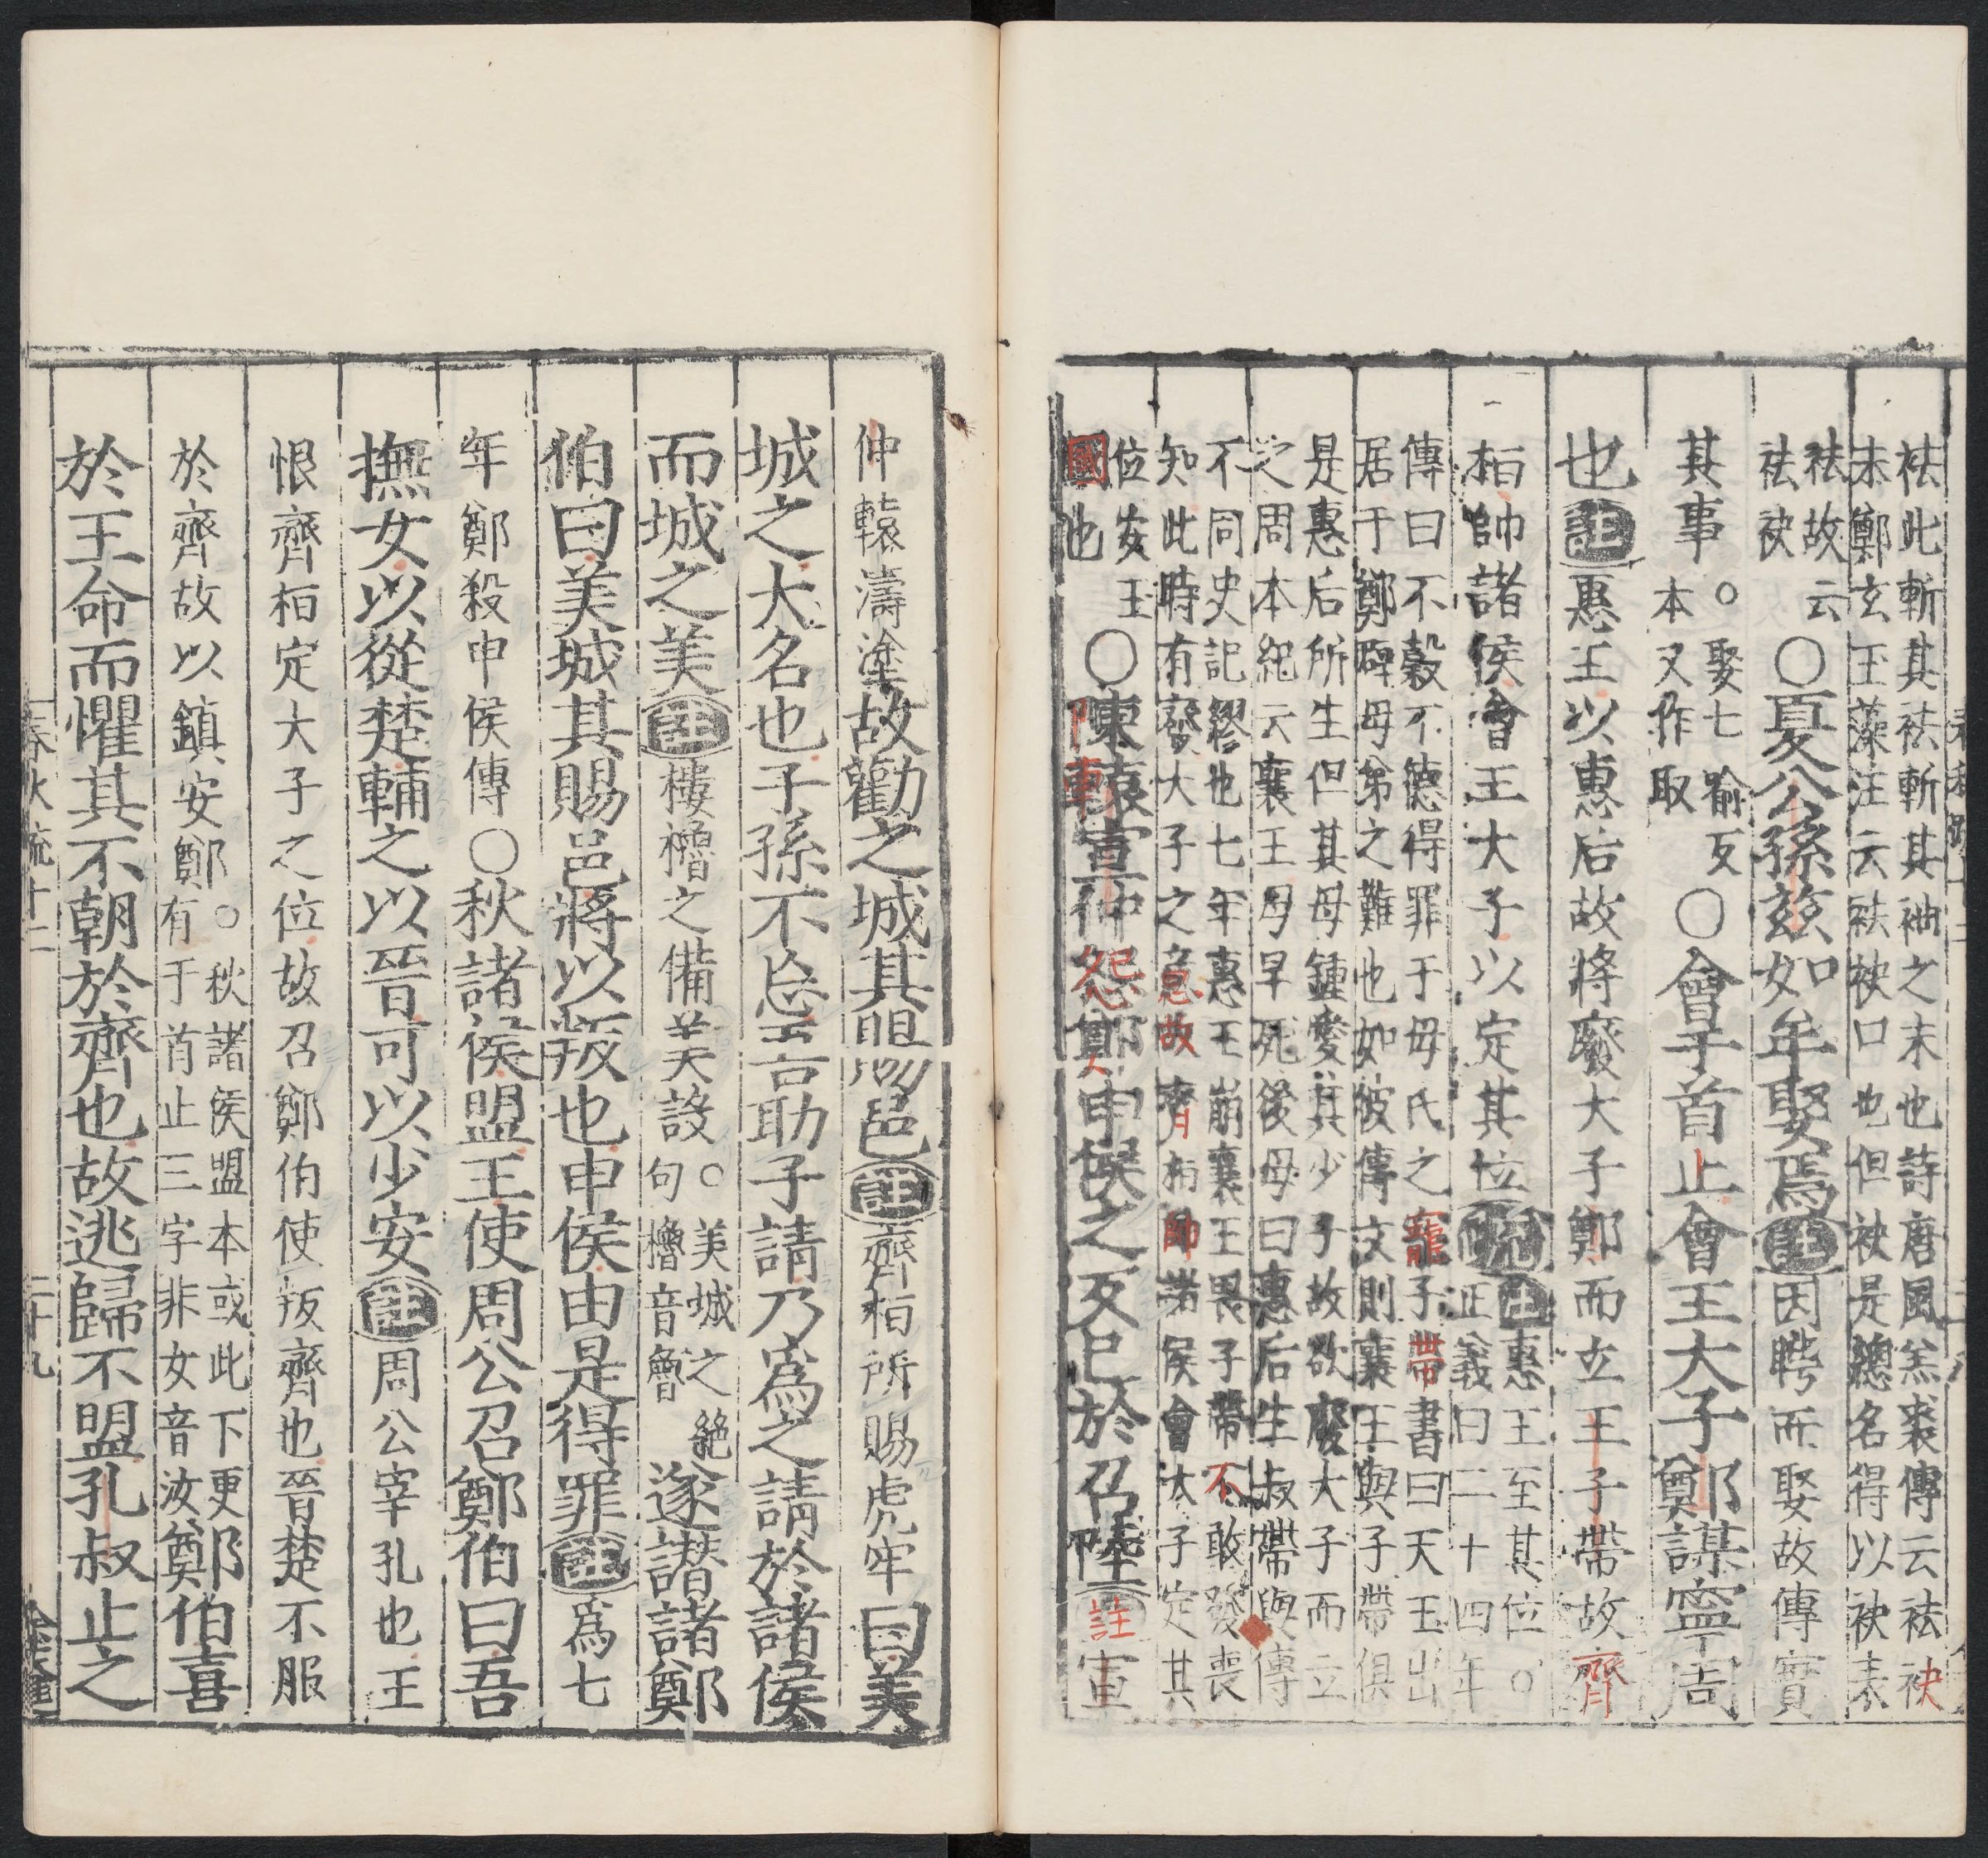 袪此斬其袪斬其袖之末也詩唐風羔裘傳云袪袂
末鄭玄玉藻注云袪袂口也但袂是總名得以袂表
袪故云
袪袂
○夏公孫玆如牟娶焉註因聘而娶故傳實
其事
○娶七喻反
本又作取
○會于首止會王大子鄭謀寧周
也註惠王以惠后故將廢大子鄭而立王子帶故齊
桓帥諸侯會王大子以定其位疏
註惠王至其位○
正義曰二十四年
傳曰不穀不德得罪于母氏之寵子帶書曰天王出
居于鄭辟母弟之難也如彼傳文則襄王與子帶俱
是惠后所生但其母鍾愛其少子故欲廢大子而立
之周本紀云襄王母早死後母曰惠后生叔帶與傳
不同史記繆也七年惠王崩襄王畏子帶不敢發喪
知此時有廢大子之意故齊桓帥諸侯會大子定其
位安王
國也
○陳轅宣仲怨鄭申侯之反己於召陵註宣
仲轅濤塗故勸之城其賜邑註齊桓所賜虎牢曰美
城之大名也子孫不忘吾助子請乃爲之請於諸侯
而城之美註樓櫓之備美設
○美城之絶
句櫓音魯
遂譖諸鄭
伯曰美城其賜邑將以叛也申侯由是得罪註爲七
年鄭殺申侯傳○秋諸侯盟王使周公召鄭伯曰吾
撫女以從楚輔之以晉可以少安註周公宰孔也王
恨齊桓定大子之位故召鄭伯使叛齊也晉楚不服
於齊故以鎮安鄭
○秋諸侯盟本或此下更
有于首止三字非女音汝
鄭伯喜
於王命而懼其不朝於齊也故逃歸不盟孔叔止之
春秋疏十二
二十九